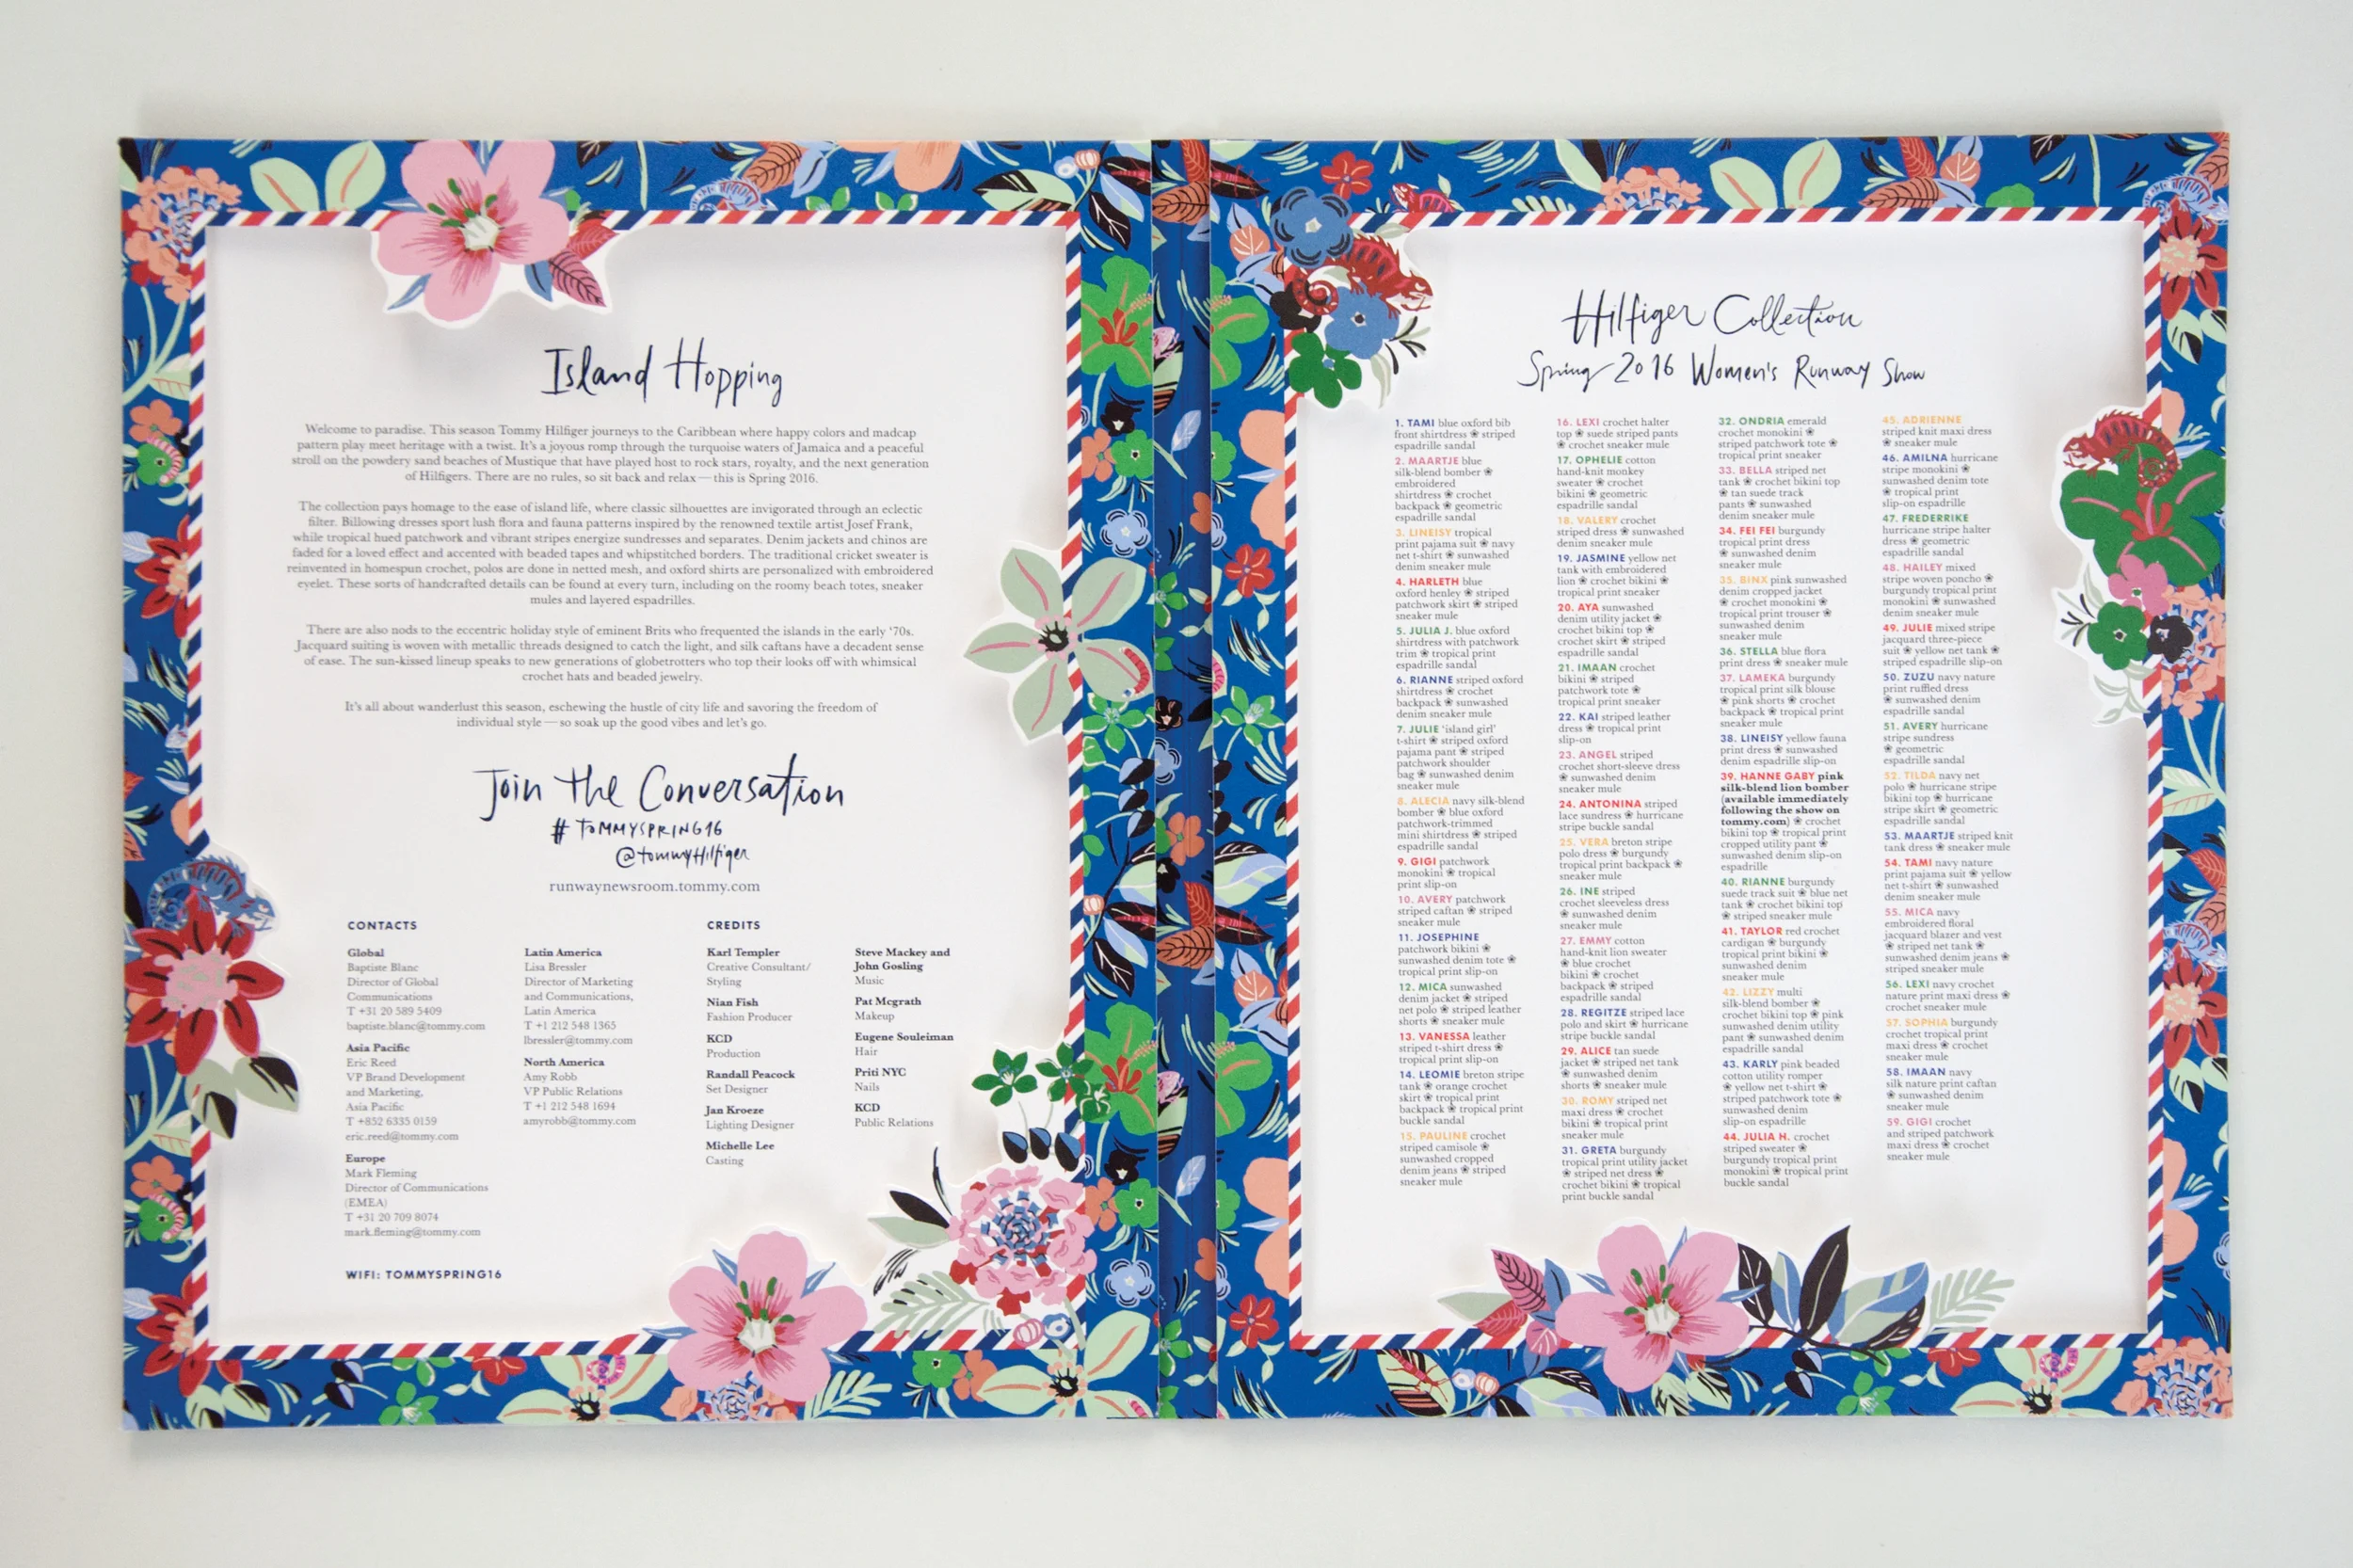 Island Hopping
Welcome to paradise. This season Tommy Hilfiger journeys to the Caribbean where happy colors and madcap
pattern play meet heritage with a twist. It's a joyous romp through the turquoise waters of Jamaica and a peaceful
stroll on the powdery sand beaches of Mustique that have played host to rock stars, royalty, and the next generation
of Hilfigers. There are no rules, so sit back and relax — this is Spring 2016.
The collection pays homage to the ease of island life, where classic silhouettes are invigorated through an eclectic
filter. Billowing dresses sport lush flora and fauna patterns inspired by the renowned textile artist Josef Frank,
while tropical hued patchwork and vibrant stripes energize sundresses and separates. Denim jackets and chinos are
faded for a loved effect and accented with beaded tapes and whipstitched borders. The traditional cricket sweater is
reinvented in homespun crochet, polos are done in netted mesh, and oxford shirts are personalized with embroidered
eyelet. These sorts of handcrafted details can be found at every turn, including on the roomy beach totes, sneaker
mules and layered espadrilles.
There are also nods to the eccentric holiday style of eminent Brits who frequented the islands in the early '70s.
Jacquard suiting is woven with metallic threads designed to catch the light, and silk caftans have a decadent sense
of ease. The sun-kissed lineup speaks to new generations of globetrotters who top their looks off with whimsical
crochet hats and beaded jewelry.
It's all about wanderlust this season, eschewing the hustle of city life and savoring the freedom of
individual style — so soak up the good vibes and let's go.
Join the Conversation
# TOMMYSPRING16
@tommyHilfiger
runwaynewsroom.tommy.com
CONTACTS
Global
Baptiste Blanc
Director of Global
Communications
T +31 20 589 5409
baptiste.blanc@tommy.com
Asia Pacific
Eric Reed
VP Brand Development
and Marketing,
Asia Pacific
T +852 6335 0159
eric.reed@tommy.com
Europe
Mark Fleming
Director of Communications
(EMEA)
T +31 20 709 8074
mark.fleming@tommy.com
Latin America
Lisa Bressler
Director of Marketing
and Communications,
Latin America
T +1 212 548 1365
lbressler@tommy.com
North America
Amy Robb
VP Public Relations
T +1 212 548 1694
amyrobb@tommy.com
CREDITS
Karl Templer
Creative Consultant/
Styling
Nian Fish
Fashion Producer
KCD
Production
Randall Peacock
Set Designer
Jan Kroeze
Lighting Designer
Michelle Lee
Casting
Steve Mackey and
John Gosling
Music
Pat Mcgrath
Makeup
Eugene Souleiman
Hair
Priti NYC
Nails
KCD
Public Relations
WIFI: TOMMYSPRING16
Hilfiger Collection
Spring 2016 Women's Runway Show
1. TAMI blue oxford bib
front shirtdress ❀ striped
espadrille sandal
2. MAARTJE blue
silk-blend bomber ❀
embroidered
shirtdress ❀ crochet
backpack ❀ geometric
espadrille sandal
3. LINEISY tropical
print pajama suit ❀ navy
net t-shirt ❀ sunwashed
denim sneaker mule
4. HARLETH blue
oxford henley ❀ striped
patchwork skirt ❀ striped
sneaker mule
5. JULIA J. blue oxford
shirtdress with patchwork
trim ❀ tropical print
espadrille sandal
6. RIANNE striped oxford
shirtdress ❀ crochet
backpack ❀ sunwashed
denim sneaker mule
7. JULIE 'island girl'
t-shirt ❀ striped oxford
pajama pant ❀ striped
patchwork shoulder
bag ❀ sunwashed denim
sneaker mule
8. ALECIA navy silk-blend
bomber ❀ blue oxford
patchwork-trimmed
mini shirtdress ❀ striped
espadrille sandal
9. GIGI patchwork
monokini ❀ tropical
print slip-on
10. AVERY patchwork
striped caftan ❀ striped
sneaker mule
11. JOSEPHINE
patchwork bikini ❀
sunwashed denim tote ❀
tropical print slip-on
12. MICA sunwashed
denim jacket ❀ striped
net polo ❀ striped leather
shorts ❀ sneaker mule
13. VANESSA leather
striped t-shirt dress ❀
tropical print slip-on
14. LEOMIE breton stripe
tank ❀ orange crochet
skirt ❀ tropical print
backpack ❀ tropical print
buckle sandal
15. PAULINE crochet
striped camisole ❀
sunwashed cropped
denim jeans ❀ striped
sneaker mule
16. LEXI crochet halter
top ❀ suede striped pants
❀ crochet sneaker mule
17. OPHELIE cotton
hand-knit monkey
sweater ❀ crochet
bikini ❀ geometric
espadrille sandal
18. VALERY crochet
striped dress ❀ sunwashed
denim sneaker mule
19. JASMINE yellow net
tank with embroidered
lion ❀ crochet bikini ❀
tropical print sneaker
20. AYA sunwashed
denim utility jacket ❀
crochet bikini top ❀
crochet skirt ❀ striped
espadrille sandal
21. IMAAN crochet
bikini ❀ striped
patchwork tote ❀
tropical print sneaker
22. KAI striped leather
dress ❀ tropical print
slip-on
23. ANGEL striped
crochet short-sleeve dress
❀ sunwashed denim
sneaker mule
24. ANTONINA striped
lace sundress ❀ hurricane
stripe buckle sandal
25. VERA breton stripe
polo dress ❀ burgundy
tropical print backpack ❀
sneaker mule
26. INE striped
crochet sleeveless dress
❀ sunwashed denim
sneaker mule
27. EMMY cotton
hand-knit lion sweater
❀ blue crochet
bikini ❀ crochet
backpack ❀ striped
espadrille sandal
28. REGITZE striped lace
polo and skirt ❀ hurricane
stripe buckle sandal
29. ALICE tan suede
jacket ❀ striped net tank
❀ sunwashed denim
shorts ❀ sneaker mule
30. ROMY striped net
maxi dress ❀ crochet
bikini ❀ tropical print
sneaker mule
31. GRETA burgundy
tropical print utility jacket
❀ striped net dress ❀
crochet bikini ❀ tropical
print buckle sandal
32. ONDRIA emerald
crochet monokini ❀
striped patchwork tote ❀
tropical print sneaker
33. BELLA striped net
tank ❀ crochet bikini top
❀ tan suede track
pants ❀ sunwashed
denim sneaker mule
34. FEI FEI burgundy
tropical print dress
❀ sunwashed denim
sneaker mule
35. BINX pink sunwashed
denim cropped jacket
❀ crochet monokini ❀
tropical print trouser ❀
sunwashed denim
sneaker mule
36. STELLA blue flora
print dress ❀ sneaker mule
37. LAMEKA burgundy
tropical print silk blouse
❀ pink shorts ❀ crochet
backpack ❀ tropical print
sneaker mule
38. LINEISY yellow fauna
print dress ❀ sunwashed
denim espadrille slip-on
39. HANNE GABY pink
silk-blend lion bomber
(available immediately
following the show on
tommy.com) ❀ crochet
bikini top ❀ tropical print
cropped utility pant ❀
sunwashed denim slip-on
espadrille
40. RIANNE burgundy
suede track suit ❀ blue net
tank ❀ crochet bikini top
❀ striped sneaker mule
41. TAYLOR red crochet
cardigan ❀ burgundy
tropical print bikini ❀
sunwashed denim
sneaker mule
42. LIZZY multi
silk-blend bomber ❀
crochet bikini top ❀ pink
sunwashed denim utility
pant ❀ sunwashed denim
espadrille sandal
43. KARLY pink beaded
cotton utility romper
❀ yellow net t-shirt ❀
striped patchwork tote ❀
sunwashed denim
slip-on espadrille
44. JULIA H. crochet
striped sweater ❀
burgundy tropical print
monokini ❀ tropical print
buckle sandal
45. ADRIENNE
striped knit maxi dress
❀ sneaker mule
46. AMILNA hurricane
stripe monokini ❀
sunwashed denim tote
❀ tropical print
slip-on espadrille
47. FREDERRIKE
hurricane stripe halter
dress ❀ geometric
espadrille sandal
48. HAILEY mixed
stripe woven poncho ❀
burgundy tropical print
monokini ❀ sunwashed
denim sneaker mule
49. JULIE mixed stripe
jacquard three-piece
suit ❀ yellow net tank ❀
striped espadrille slip-on
50. ZUZU navy nature
print ruffled dress
❀ sunwashed denim
espadrille sandal
51. AVERY hurricane
stripe sundress
❀ geometric
espadrille sandal
52. TILDA navy net
polo ❀ hurricane stripe
bikini top ❀ hurricane
stripe skirt ❀ geometric
espadrille sandal
53. MAARTJE striped knit
tank dress ❀ sneaker mule
54. TAMI navy nature
print pajama suit ❀ yellow
net t-shirt ❀ sunwashed
denim sneaker mule
55. MICA navy
embroidered floral
jacquard blazer and vest
❀ striped net tank ❀
sunwashed denim jeans ❀
striped sneaker mule
56. LEXI navy crochet
nature print maxi dress ❀
crochet sneaker mule
57. SOPHIA burgundy
crochet tropical print
maxi dress ❀ crochet
sneaker mule
58. IMAAN navy
silk nature print caftan
❀ sunwashed denim
sneaker mule
59. GIGI crochet
and striped patchwork
maxi dress ❀ crochet
sneaker mule